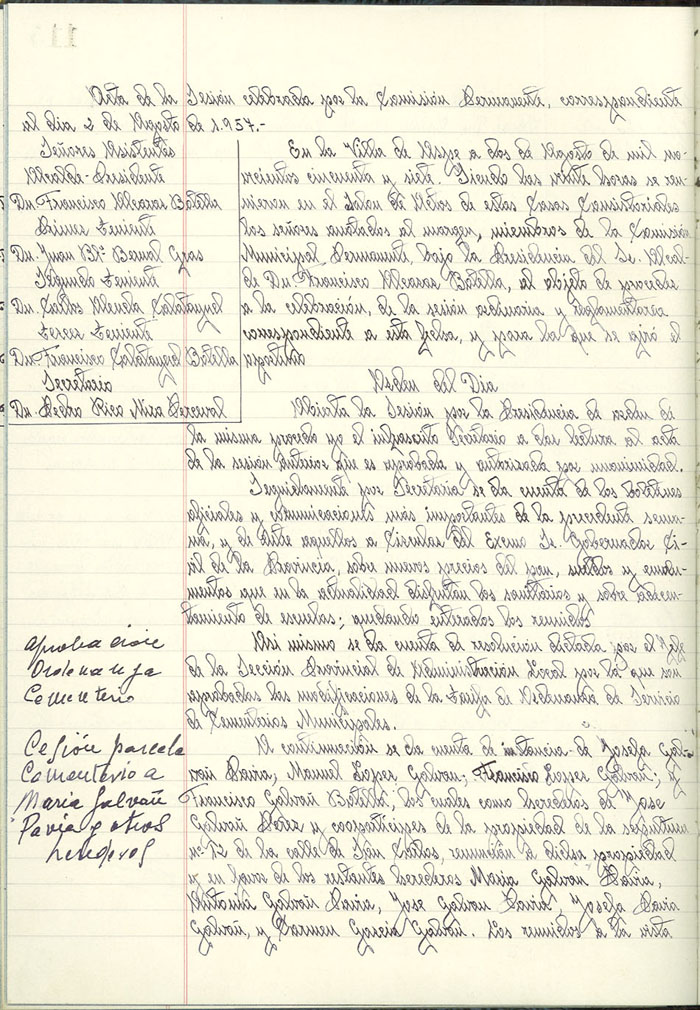 Acta de la Sesión celebrada por la Comisión Permanente, correspondiente
al dia 2 de Agosto de 1.957.-
Señores Asistentes
Alcalde-Presidente
Dn. Francisco Alcaraz Botella
Primer Teniente
Dn. Juan Btª Bernal Gras
Segundo Teniente
Dn. Carlos Calatayud
Tercer Teniente
Dn. Francisco Calatayud Botella
Secretario
Dn. Pedro Rico Mira Perceval
En la Villa de Aspe a dos de Agosto de mil no-
vecientos cincuenta y siete. Siendo las veinte horas se reu-
nieron en el Salon de Actos de estas Casas Consistoriales
los señores anotados al margen, miembros de la Comisión
Municipal Permanente, bajo la Presidencia del Sr. Alcal-
de Dn. Francisco Alcaraz Botella, al objeto de proceder
a la celebración, de la sesión ordinaria y reglamentaria
correspondiente a esta fecha, y para la que se fijó el
siguiente
Orden del Dia
Abierta la Sesión por la Presidencia de orden de
la misma procedo yo el infrascrito Secretario a dar lectura al acta
de la sesión anterior que es aprobada y autorizada por unanimidad.
Seguidamente por Secretaria se da cuenta de los boletines
oficiales y comunicaciones más importantes de la precedente sema-
na, y de entre aquellos a Circular del Excmo Sr. Gobernador Ci-
vil de la Provincia, sobre nuevos precios del pan, sueldos y emolu-
mentos que en la actualidad disfrutan los sanitarios y sobre adecen-
tamiento de escuelas; quedando enterados los reunidos
aprobacion
Ordenanza
Cementerio
Asi mismo se da cuenta de resolución dictada por el Jefe
de la Sección Provincial de Administración Local por la que son
aprobadas las modificaciones de la Tarifa de Ordenanza de Servicio
de Cementerios Municipales.
Cesión parcela
Cementerio a
Maria Galvañ
Pavia y otros
herederos
A continuación se da cuenta de instancia de Josefa Gal-
vañ Pavia, Manuel Lopez Galvañ; Francisco Lopez Galvañ; y
Francisco Galvañ Botella; los cuales como herederos de Jose
Galvañ Perez y coopartícipes de la propiedad de la sepultura
nº 12 de la calle de San Carlos, renuncian a dicha propiedad
y en favor de los restantes herederos Maria Galvañ Pavia,
Antonia Galvañ Pavia, Jose Galvañ Pavia, Josefa Pavia
Galvañ, y Carmen Garcia Galvañ. Los reunidos a la vista